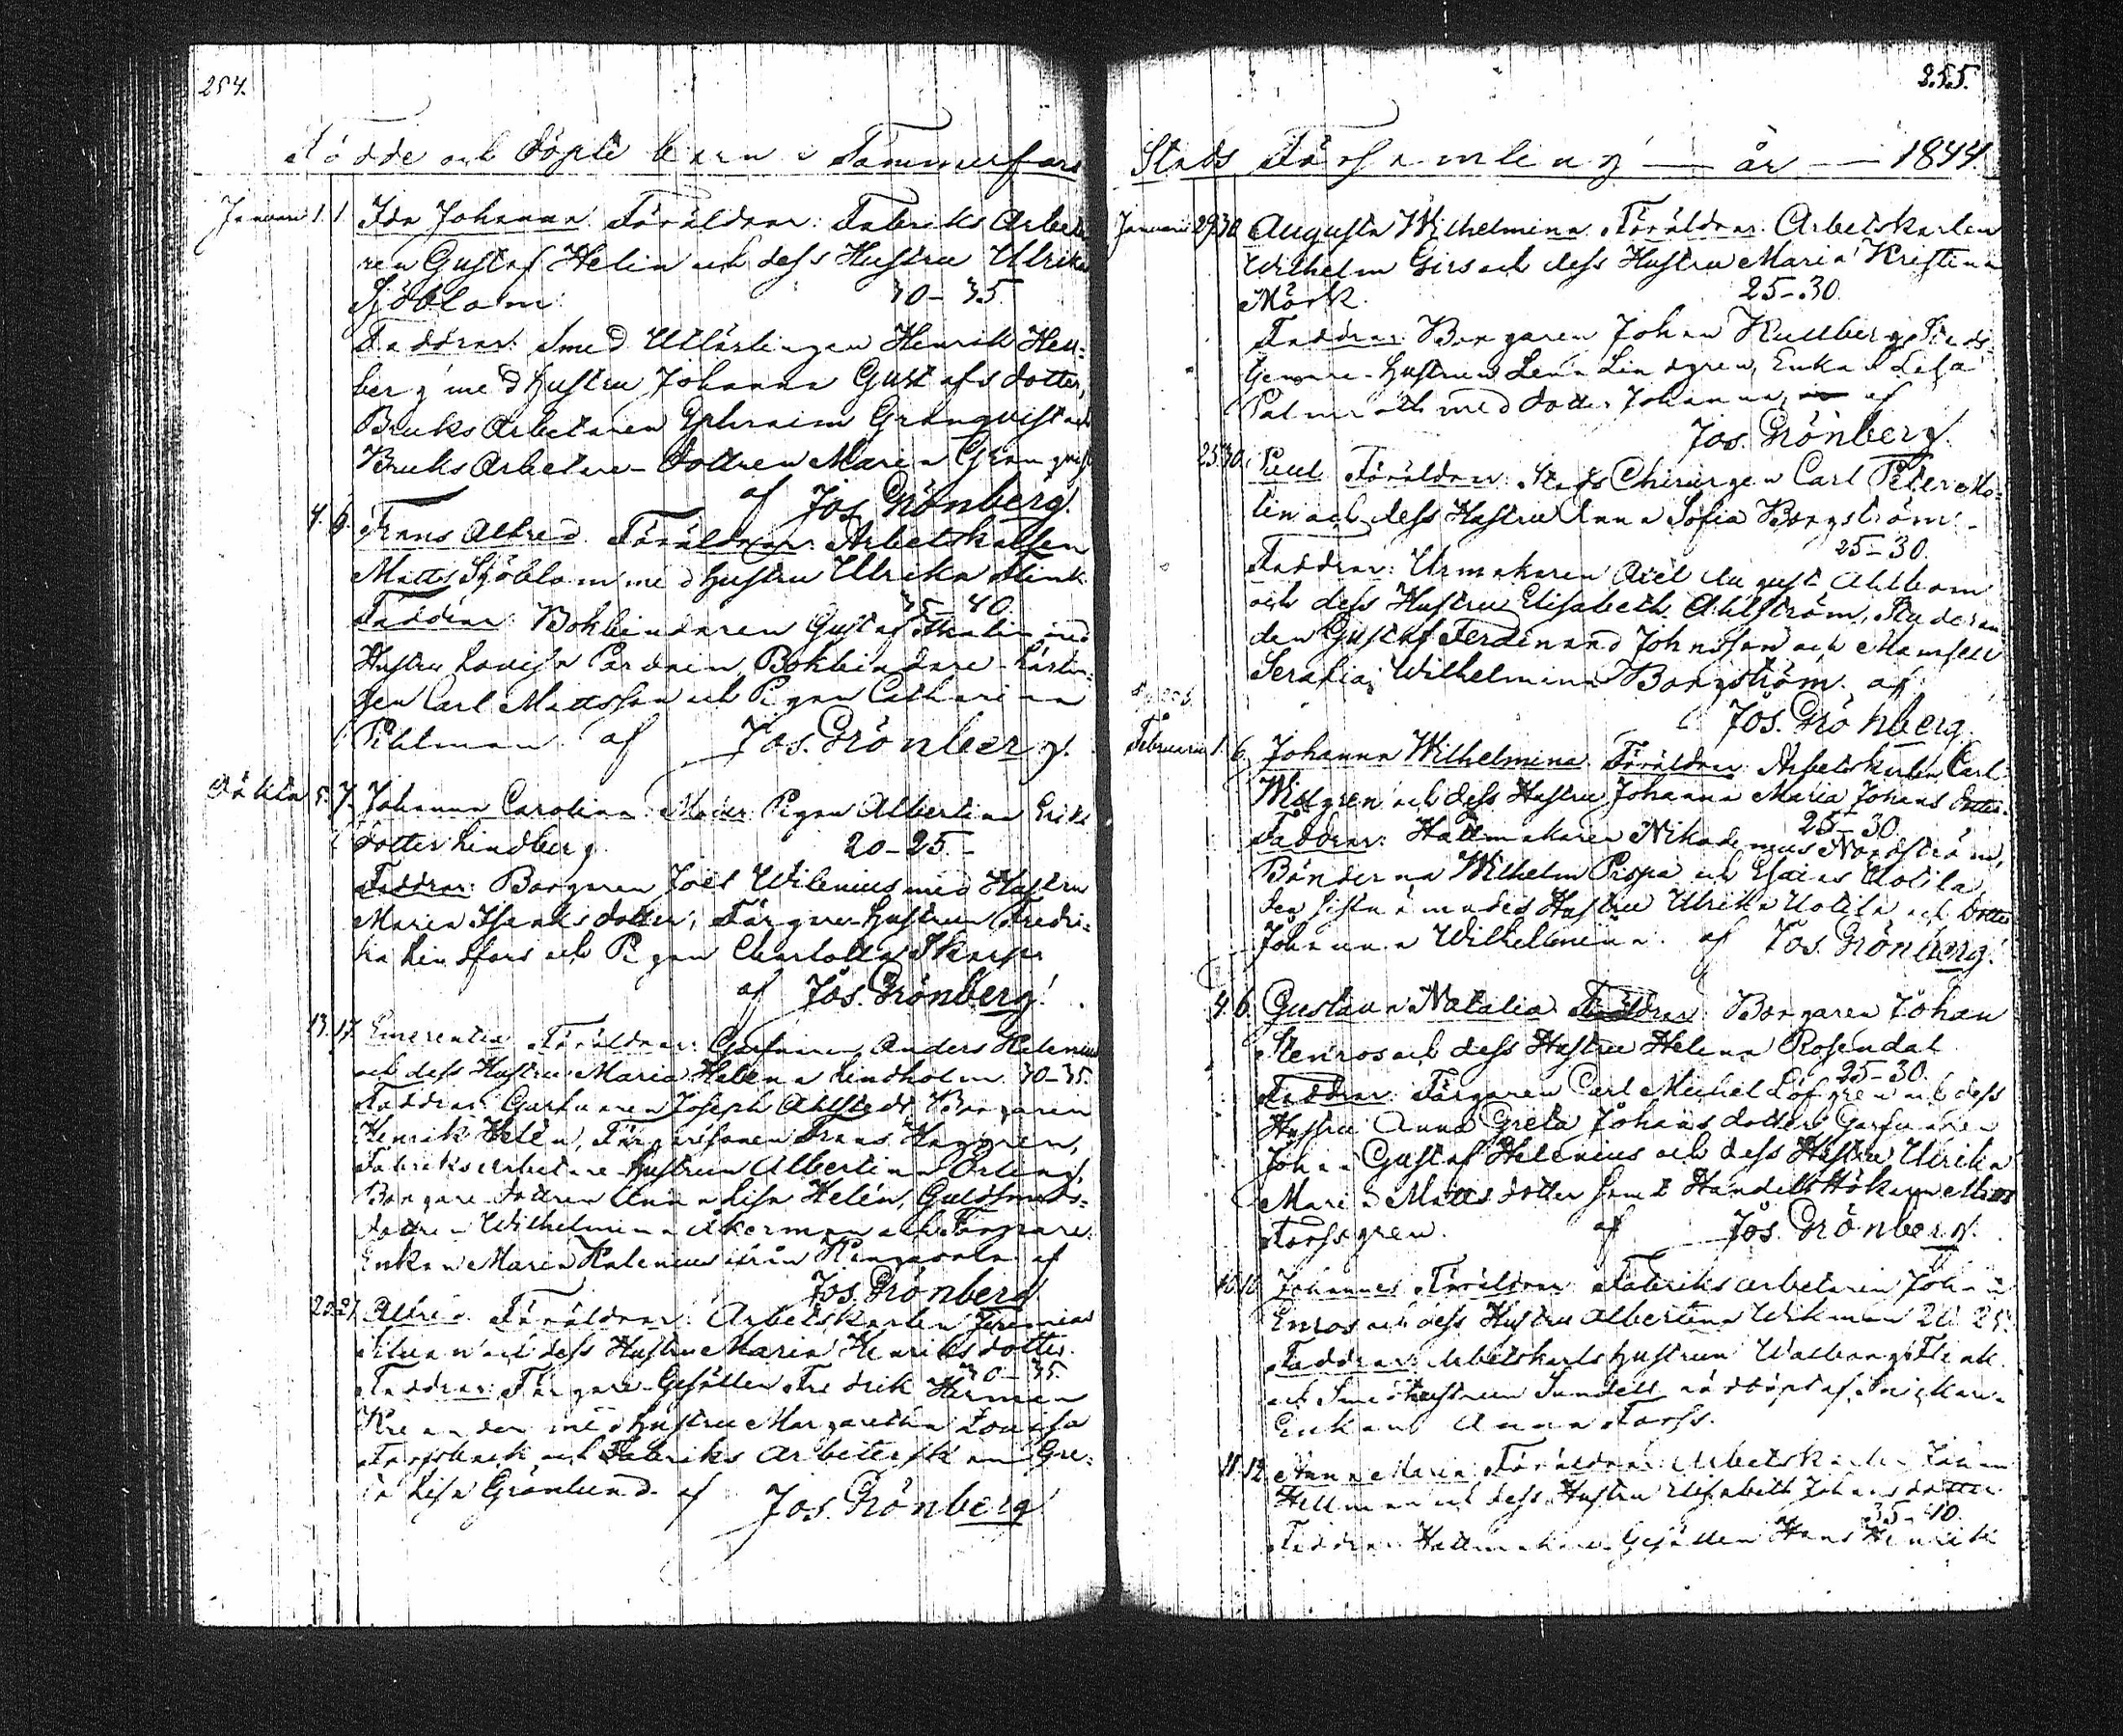 254.
Födde och döpte barn i Tammerfors
Januari 1. 1. Ida Johanna. Föräldrar: Fabriks Arbeta
ren Gustaf Helin och dess Hustru Ulrika
Sjöblom. 30-35.
Faddrar: Smed Utlärlingen Henrik Hell=
berg med hustru Johanna Gustafs dotter,
Bruks Arbetaren Ephraim Granqvist och
Bruks Arbetare-Dottren Maria Granqvist
af Jos. Grönberg.
4. 6. Frans Alfred. Föräldrar: Arbetskarlen
Matts Sjöblom med hustru Ulrika Flink.
35-40.
Faddrar: Bokbindaren Gustaf Malin med
Hustru Lovisa Pardain, Bokbindare-Lärlin-
gen Carl Mattsson och Pigan Catharina
Pihlman. af Jos. Grönberg.
Oäkta 5. 7. Johanna Carolina. Moder: Pigan Albertina Eriks
dotter Lindberg. 20-25.-
Faddrar: Borgaren Joel Wilenius med Hustru
Maria Isaks dotter, Färgare-hustrun Fredri=
ka Lindfors och Pigan Charlotta Skarp.
af Jos. Grönberg.
13. 17. Emerentia. Föräldrar: Garfvaren Anders Helenius
och dess Hustru Maria Helena Lindholm. 30-35.
Faddrar: Garfvaren Joseph Ahlstedt, Borgaren
Henrik Helén, Frans Haggren,
Fabriksarbetare-hustrun Albertina
Borgare-dottren Anna Lisa Helén, Guldsmeds=
dottren Wilhelmina Åkerman och
Enkan Maria Kalenius ifrån Kangasala. af
Jos. Grönberg
20. 21. Alfred. Föräldrar: Arbetskarlen Jeremias
och dess Hustru Maria Henriks dotter.
30-35.
Faddrar: Färgare-Gesällen Fredrik Herman
med hustru Margaretha Lovisa
och Fabriks arbeterskan Gre=
ta Lisa Grönlund. af Jos. Grönberg.
255.
Stads Församling — år — 1844.
Januari 29. 30. Augusta Wilhelmina. Föräldrar: Arbetskarlen
Wilhelm Girs och dess Hustru Maria Kristina
Mörk. 25-30.
Faddrar: Borgaren Johan Kullberg,
hustrun Lena Lindgren, Enkan Lisa
med dotter Johanna, af
Jos. Grönberg.
25. 30. Paul. Föräldrar: Stads Chirurgen Carl Peter Mo=
lin och dess Hustru Anna Sofia Borgström.-
25-30.
Faddrar: Urmakaren Axel August Ahlbom
och dess Hustru Elisabeth Ahlström, Studeran-
den Gustaf Ferdinand Johnsson och Mamsell
Serafia Wilhelmina Borgström. af
Jos. Grönberg.
Februarii 1. 6. Johanna Wilhelmina. Föräldrar: Arbetskarlen Carl
Widgren och dess Hustru Johanna Maria Johans dotter.
25-30.
Faddrar: Hattmakaren Nikodemus Nordström,
Bönderna Wilhelm Pispa och Esaias Uotila,
den sistnämndes Hustru Ulrika Uotila och Dotter
Johanna Wilhelmina. af Jos. Grönberg.
4. 6. Gustava Natalia. Föräldrar: Borgaren Johan
Stenros och dess Hustru Helena Rosendal.
25-30.
Faddrar: Färgaren Carl Michel Löfgren och dess
Hustru Anna Greta Johans dotter, Garfvaren
Johan Gustaf Helenius och dess Hustru Ulrika
Maria Matts dotter samt Handels Hökaren Matts
Forssgren. af Jos. Grönberg.
10. 10. Johannes. Föräldrar: Fabriks arbetaren Johan
Enros och dess Hustru Albertina Wikman 20-25.
Faddrar: Arbetskarls hustrun Walborg Flink
och Smedhustrun Sundell. nöddöpt af Snickare
Enkan Anna Forss.
11. 12. Anna Maria. Föräldrar: Arbetskarlen Johan
Hellman och dess Hustru Elisabeth Johans dotter.
35-40.
Faddrar: Hattmakare-Gesällen Hans Henrik